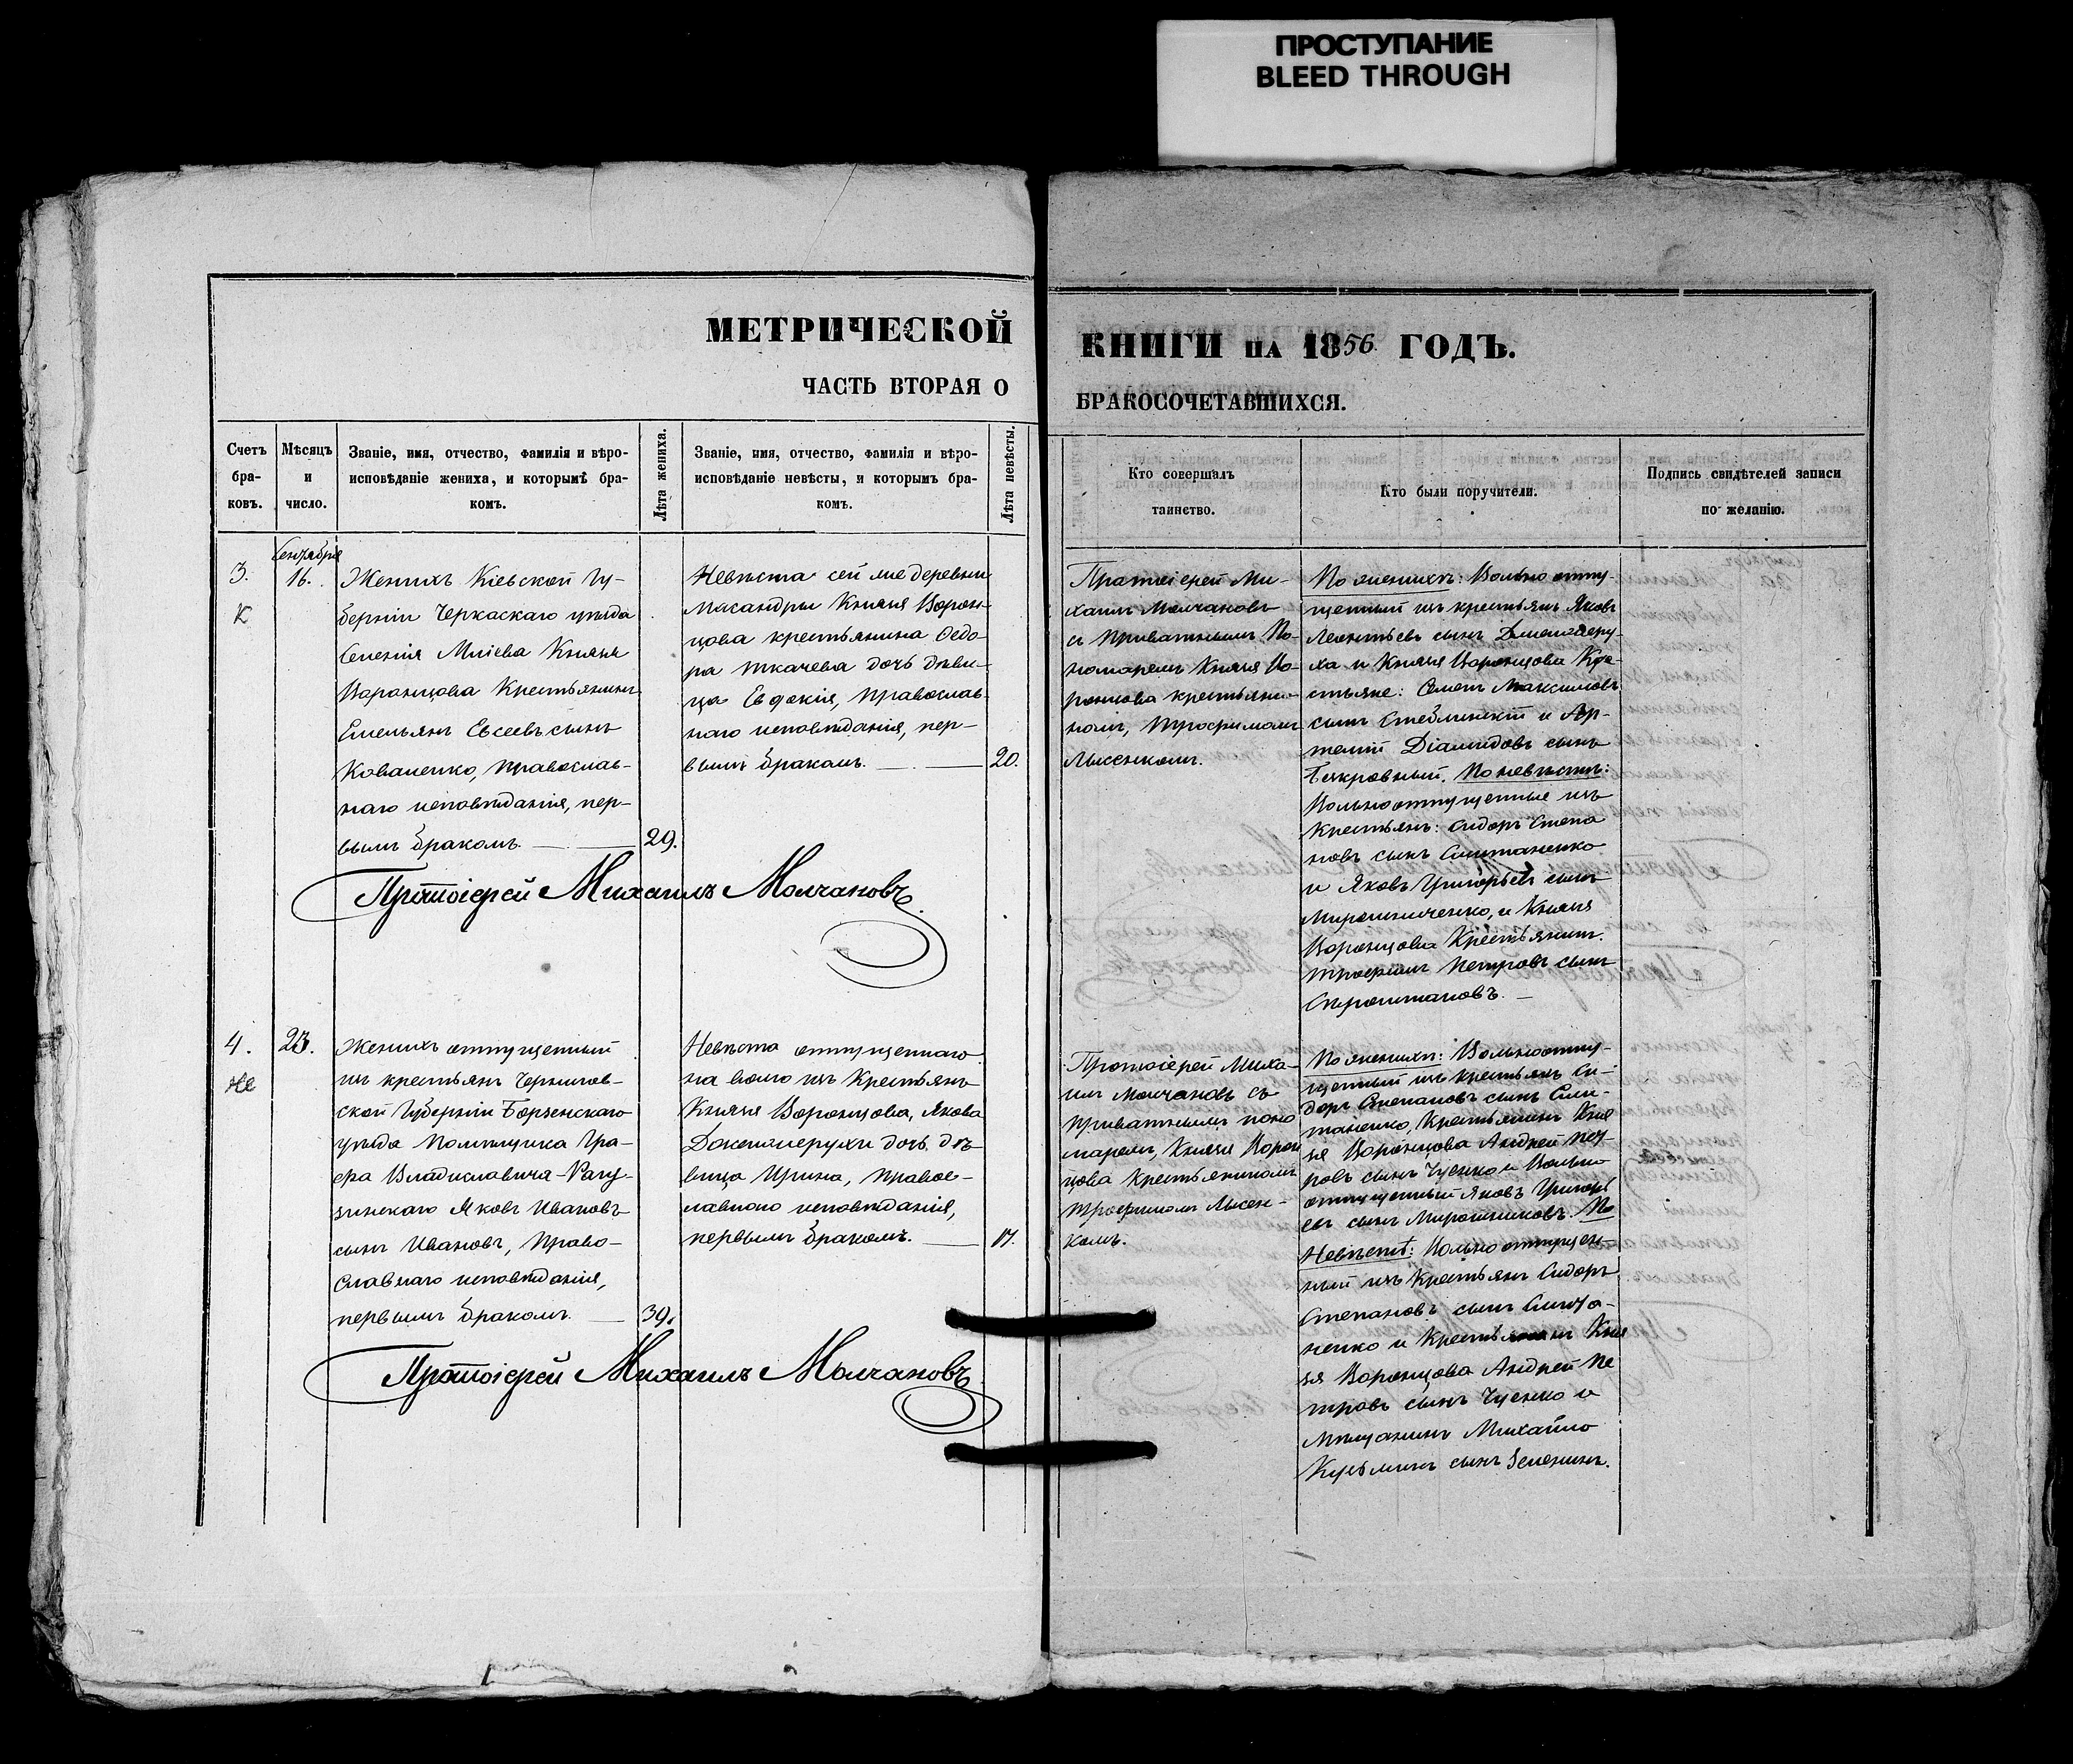 ПРОСТУПАНИЕ
BLEED THROUGH
МЕТРИЧЕСКОЙ
ЧАСТЬ ВТОРАЯ О
КНИГИ НА 1856 ГОДЪ.
БРАКОСОЧЕТАВШИХСЯ.
Счетъ
бра-
ковъ.
Мѣсяцъ
и
число.
Званіе, имя, отчество, фамилія и вѣро-
исповѣданіе жениха, и которымъ бра-
комъ.
Лѣта жениха.
Званіе, имя, отчество, фамилія и вѣро-
исповѣданіе невѣсты, и которымъ бра-
комъ.
Лѣта невѣсты.
Кто совершалъ
таинство.
Кто были поручители.
Подпись свидѣтелей записи
по желанію.
3.
К
Сентября
16.
Женихъ Кіевской Гу-
берніи Черкаскаго уѣзда
Селенія Мліева Князя
Воронцова Крестьянинъ
Емельянъ Евсеевъ сынъ
Коваленко, православ-
наго исповѣданія, пер-
вымъ бракомъ.
29.
Невѣста сей же деревни
Масандры Князя Ворон-
цова крестьянина Ѳедо-
ра Ткачева дочь дѣви-
ца Евдокія, православ-
наго исповѣданія, пер-
вымъ бракомъ.
20.
Протоіерей Ми-
хаилъ Молчановъ
съ приватнымъ По-
номаремъ Князя Во-
ронцова крестьяни-
номъ, Трофимомъ
Лысенкомъ.
По женихѣ: Вольноотпу-
щенный изъ крестьянъ Яковъ
Леонтьевъ сынъ
ха и Князя Воронцова Кре-
стьяне: Семенъ Максимовъ
сынъ Стеблинскій и Ар-
темій Діамидовъ сынъ
По невѣстѣ:
Вольноотпущенные изъ
Крестьянъ: Сидоръ Степа
новъ сынъ
и Яковъ Григорьевъ сынъ
Мирошниченко, и Князя
Воронцова Крестьянинъ
Трофимъ Петровъ сынъ
Протоіерей Михаилъ Молчановъ
4.
Не
23.
Женихъ отпущенный
изъ крестьянъ Чернигов-
ской Губерніи Борзенскаго
уѣзда Помѣщика Гра-
фа Владиславича-Рагу-
зинскаго Яковъ Ивановъ
сынъ Ивановъ, Право-
славнаго исповѣданія,
первымъ бракомъ.
39.
Невѣста отпущеннаго
на волю изъ Крестьянъ
Князя Воронцова, Якова
дочь дѣ-
вица Ирина, Правос-
лавнаго исповѣданія,
первымъ бракомъ.
17.
Протоіерей Миха-
илъ Молчановъ съ
приватнымъ поно
маремъ, Князя Ворон
цова Крестьяниномъ
Трофимомъ Лысен-
комъ.
По женихѣ: Вольноотпу-
щенный изъ крестьянъ Си-
доръ Степановъ сынъ Сини-
таненко, Крестьянинъ Кня
зя Воронцова Андрей Пет-
ровъ сынъ Гуценко и Вольно
отпущенный Яковъ Григорь
евъ сынъ Мирошниковъ. По
Невѣстѣ: Вольноотпущен-
ный изъ Крестьянъ Сидоръ
Степановъ сынъ Синита-
ненко и Крестьянинъ Кня
зя Воронцова Андрей Пе
тровъ сынъ Гуценко и
Мѣщанинъ Михайло
Кузьминъ сынъ Зеленинъ.
Протоіерей Михаилъ Молчановъ